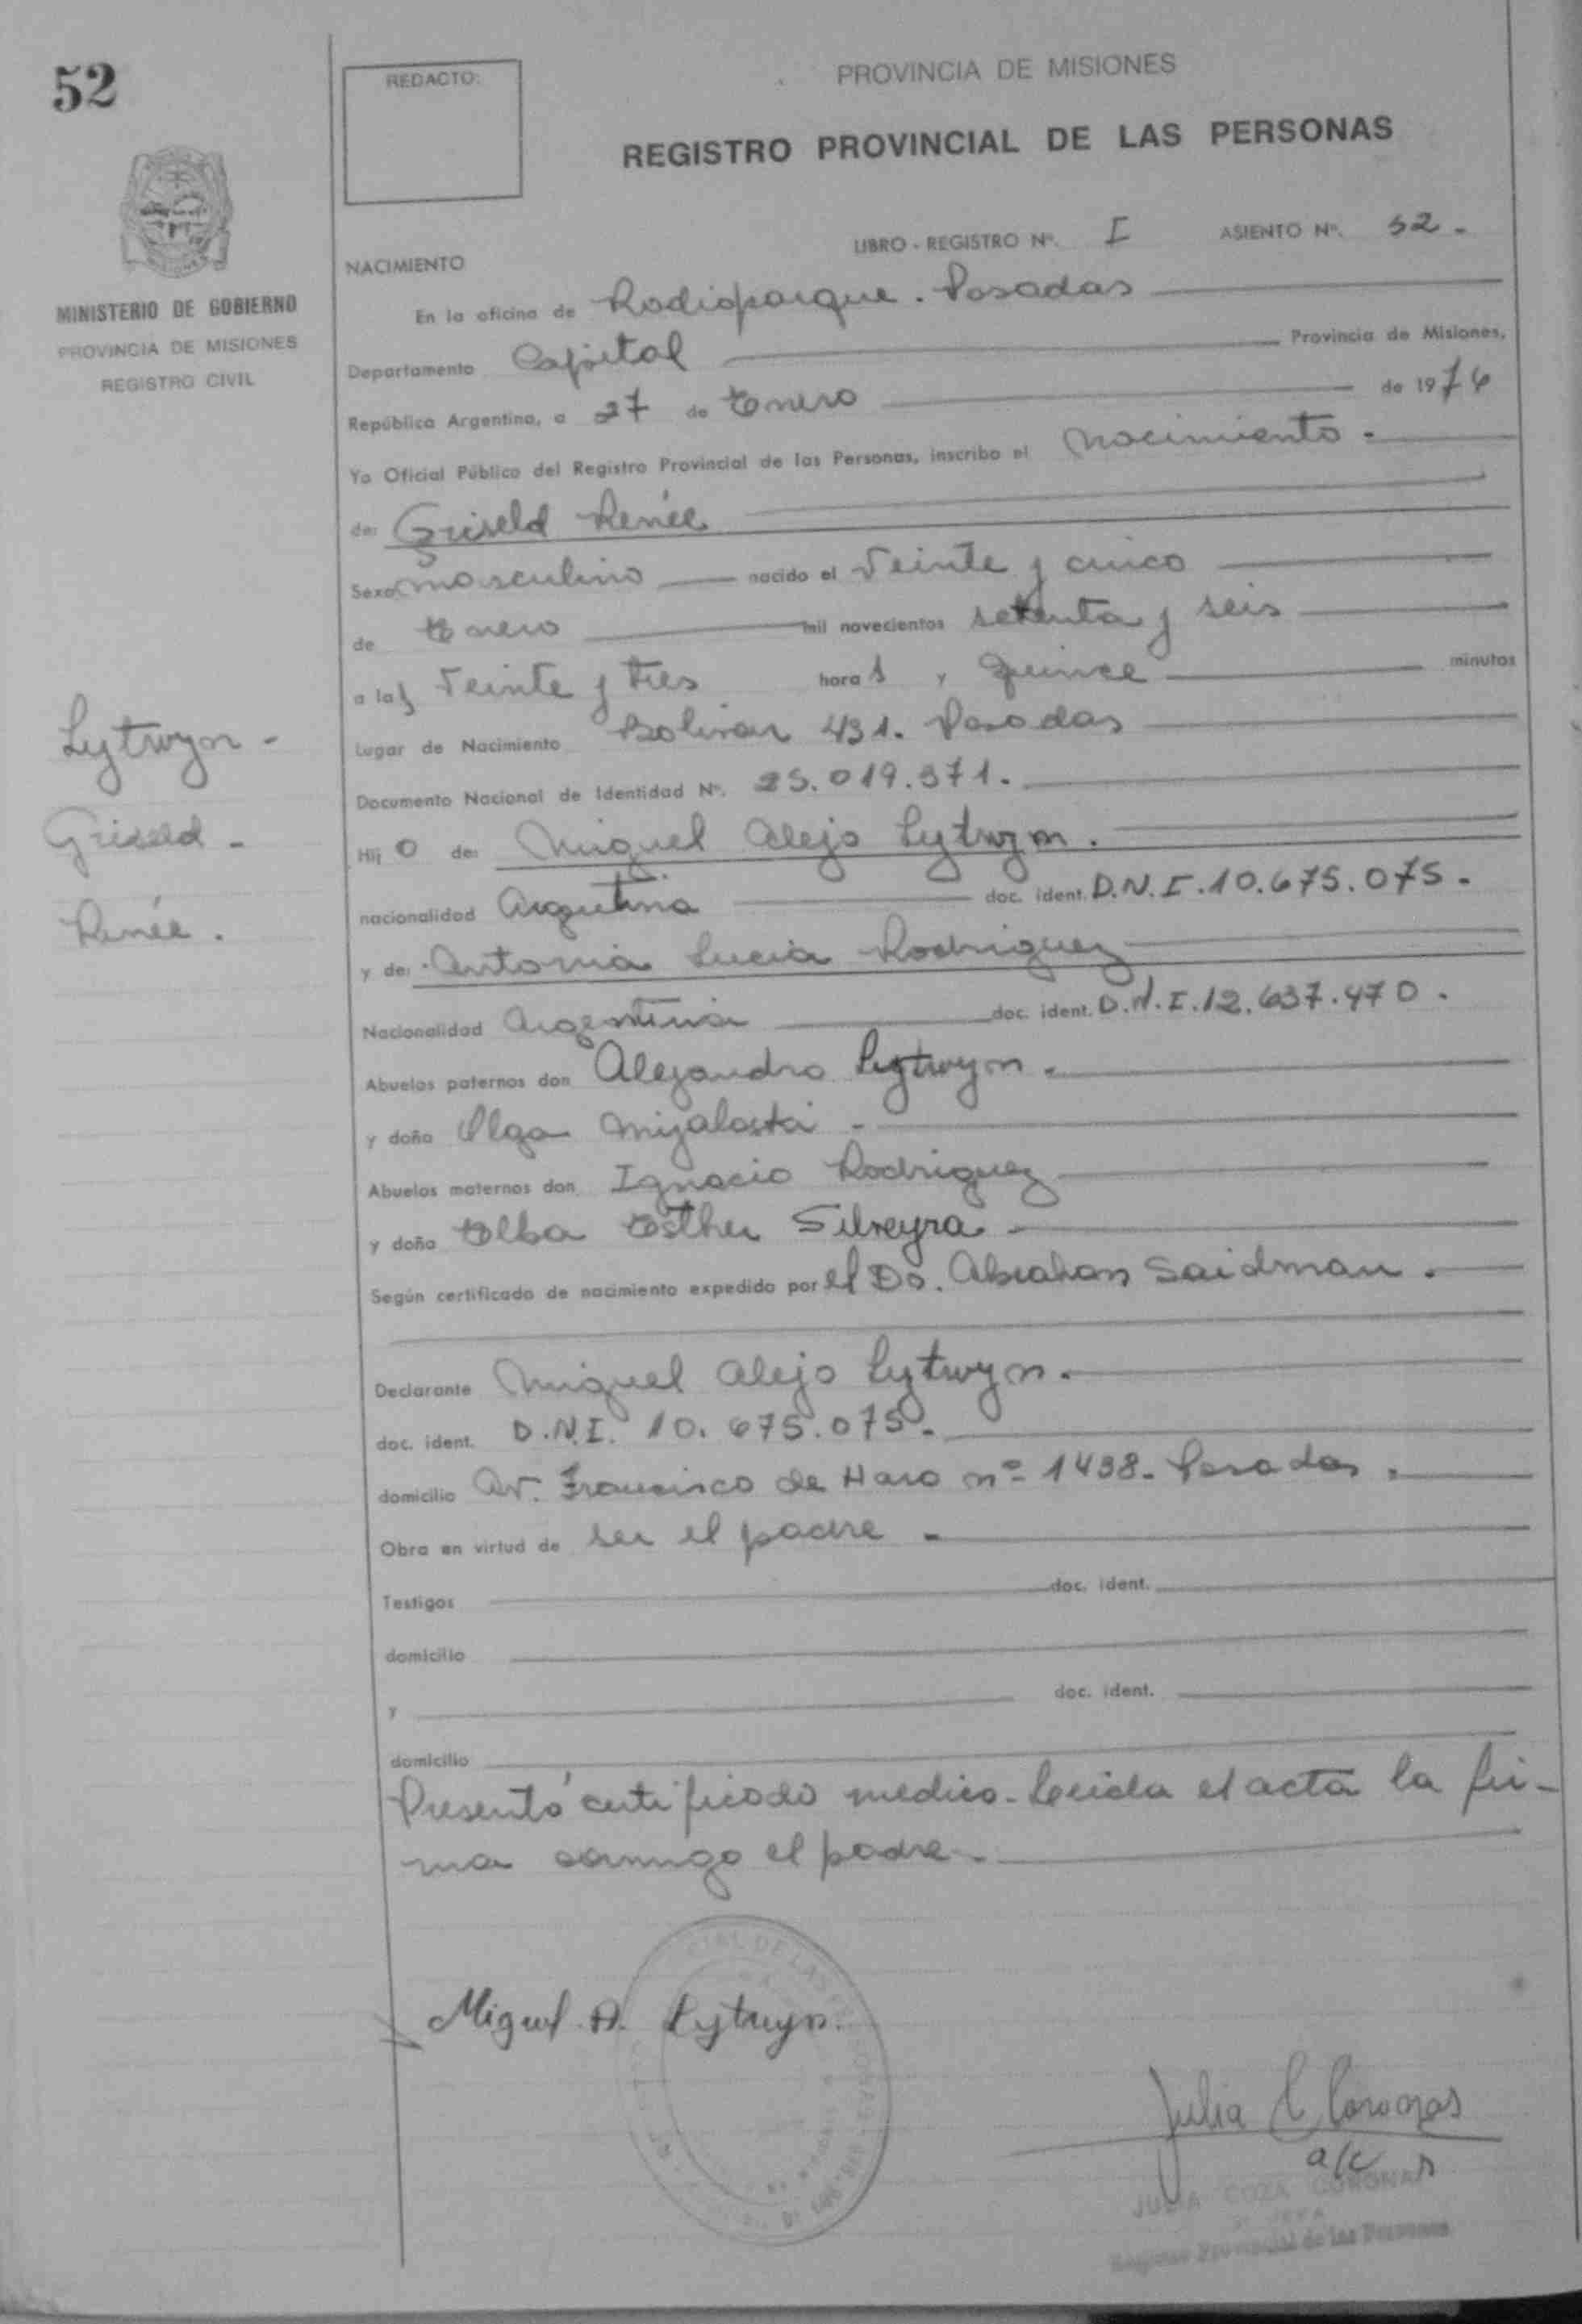 52
REDACTO:
PROVINCIA DE MISIONES
REGISTRO PROVINCIAL DE LAS PERSONAS
MINISTERIO DE GOBIERNO
PROVINCIA DE MISIONES
REGISTRO CIVIL
LIBRO - REGISTRO Nº. I ASIENTO Nº. 52 -
NACIMIENTO
En la oficina de Radioparque. Posadas
Departamento Capital Provincia de Misiones,
República Argentina, a 27 de Enero de 1976
Yo Oficial Público del Registro Provincial de las Personas, inscribo el Nacimiento -
de: Griseld Renée
Sexo masculino nacido el Veinte y cinco
de Enero mil novecientos setenta y seis
a las Veinte y tres horas y quince minutos
Lugar de Nacimiento Bolivar 431. Posadas
Documento Nacional de Identidad Nº. 25.019.371.
Hijo de: Miguel Alejo Lytwyn.
nacionalidad Argentina doc. ident. D.N.I. 10.675.075.
y de: Antonia Lucia Rodriguez
Nacionalidad Argentina doc. ident. D.N.I. 12.637.470.
Abuelos paternos don Alejandro Lytwyn.
y doña Olga -
Abuelos maternos don Ignacio Rodriguez
y doña Elba Esther Silveyra
Según certificado de nacimiento expedido por el Do. Abrahan Saidman.
Declarante Miguel Alejo Lytwyn.
doc. ident. D.N.I. 10.675.075.
domicilio Av. Francisco de Haro nº 1438- Posadas.
Obra en virtud de ser el padre -
Testigos doc. ident.
domicilio
y doc. ident.
domicilio
Presentó certificado medico. Leida el acta la fir-
ma conmigo el padre.
Lytwyn -
Griseld -
Renée.
Miguel A. Lytwyn.
Julia C Coronas
a/c
JULIA CORONA
JEFA
Registro Provincial de las Personas